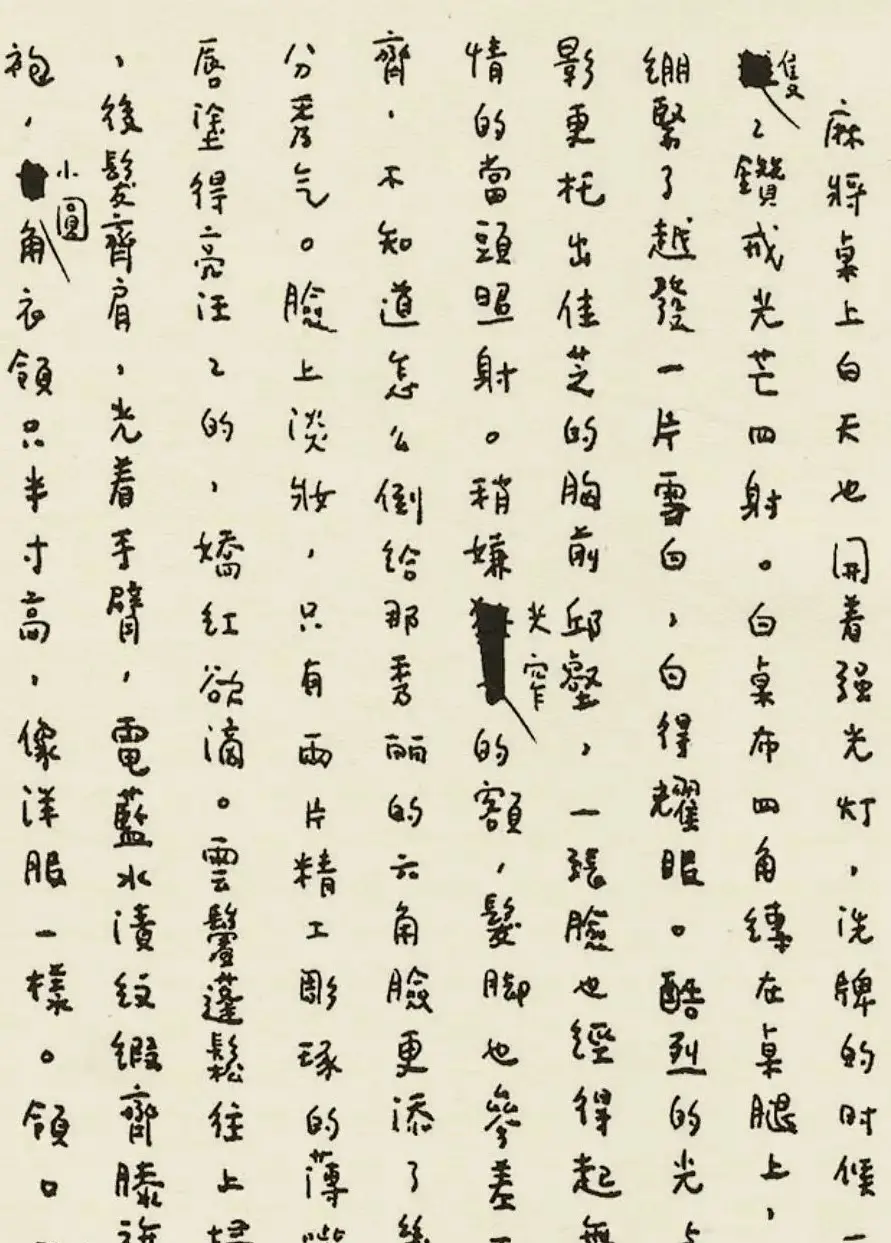 麻將桌上白天也開着强光灯，洗牌的时候一
隻々鑽戒光芒四射。白桌布四角縛在桌腿上，
綳緊了越發一片雪白，白得耀眼。酷烈的光
影更托出佳芝的胸前邱壑，一張臉也經得起無
情的當頭照射。稍嫌尖窄的額，髮脚也參差
齊，不知道怎么倒給那秀丽的六角臉更添了
分秀气。臉上淡妝，只有兩片精工彫琢的薄
唇塗得亮汪々的，嬌紅欲滴。雲鬢蓬鬆往上
，後髮齊肩，光着手臂，電藍水漬紋緞齊膝旗
袍，小圓角衣領只半寸高，像洋服一樣。領口